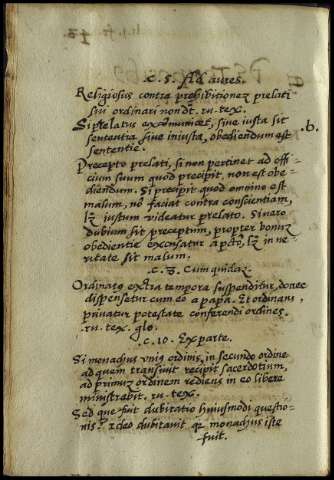 c. 5. Ad aures.
Religiosus contra prohibitionez prelati
sui ordinari non dt. ru. tex.
Si prelatus excõmunicet, sive iusta sit
sententia sive iniusta, obediendum est
sententie.
.b.
Precepto prelati, si non pertinet ad offi-
cium suum quod precipit, non est obe-
diendum. Si precipit quod omnino est
malum, nõ faciat contra conscientiam,
lz iustum videatur prelato. Si vero
dubium sit preceptum, propter bonuz
obedientie excusatur a pctõ, lz in ve-
ritate sit malum.
c. 8. Cum quidaz.
Ordinatus extra tempora suspenditur, donec
dispensetur cum eo a papa. Et ordinans,
privatur potestate conferendi ordines.
.ru. tex. glo.
c. 10. Ex parte.
Si monachus unius ordinis, in secundo ordine
ad quem transivit recipit sacerdotium,
ad primuz ordinem rediens in eo libere
ministrabit. ru. tex.
Sed que fuit dubitatio huiusmodi questio-
nis? Ideo dubitavit qz monachus iste
fuit.